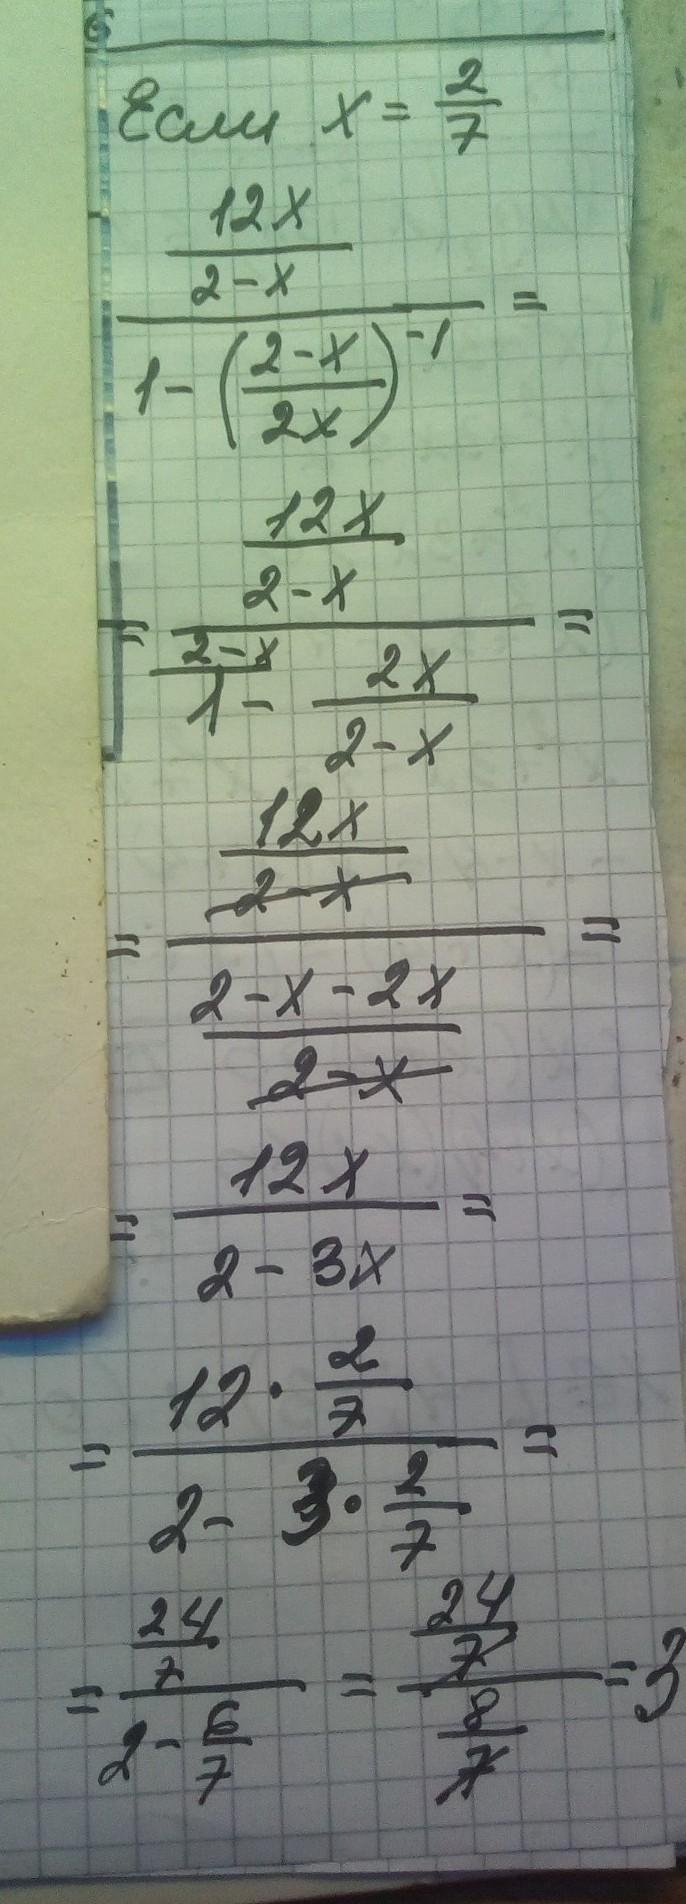 Если x = 2/7
(12x/(2-x)) / (1-((2-x)/2x)^-1) =
= (12x/(2-x)) / ((2-x)/1 - 2x/(2-x)) =
= (12x/(2-x)) / ((2-x-2x)/(2-x)) =
= 12x/(2-3x) =
= (12·2/7) / (2-3·2/7) =
= (24/7) / (2-6/7) = (24/7) / (8/7) = 3